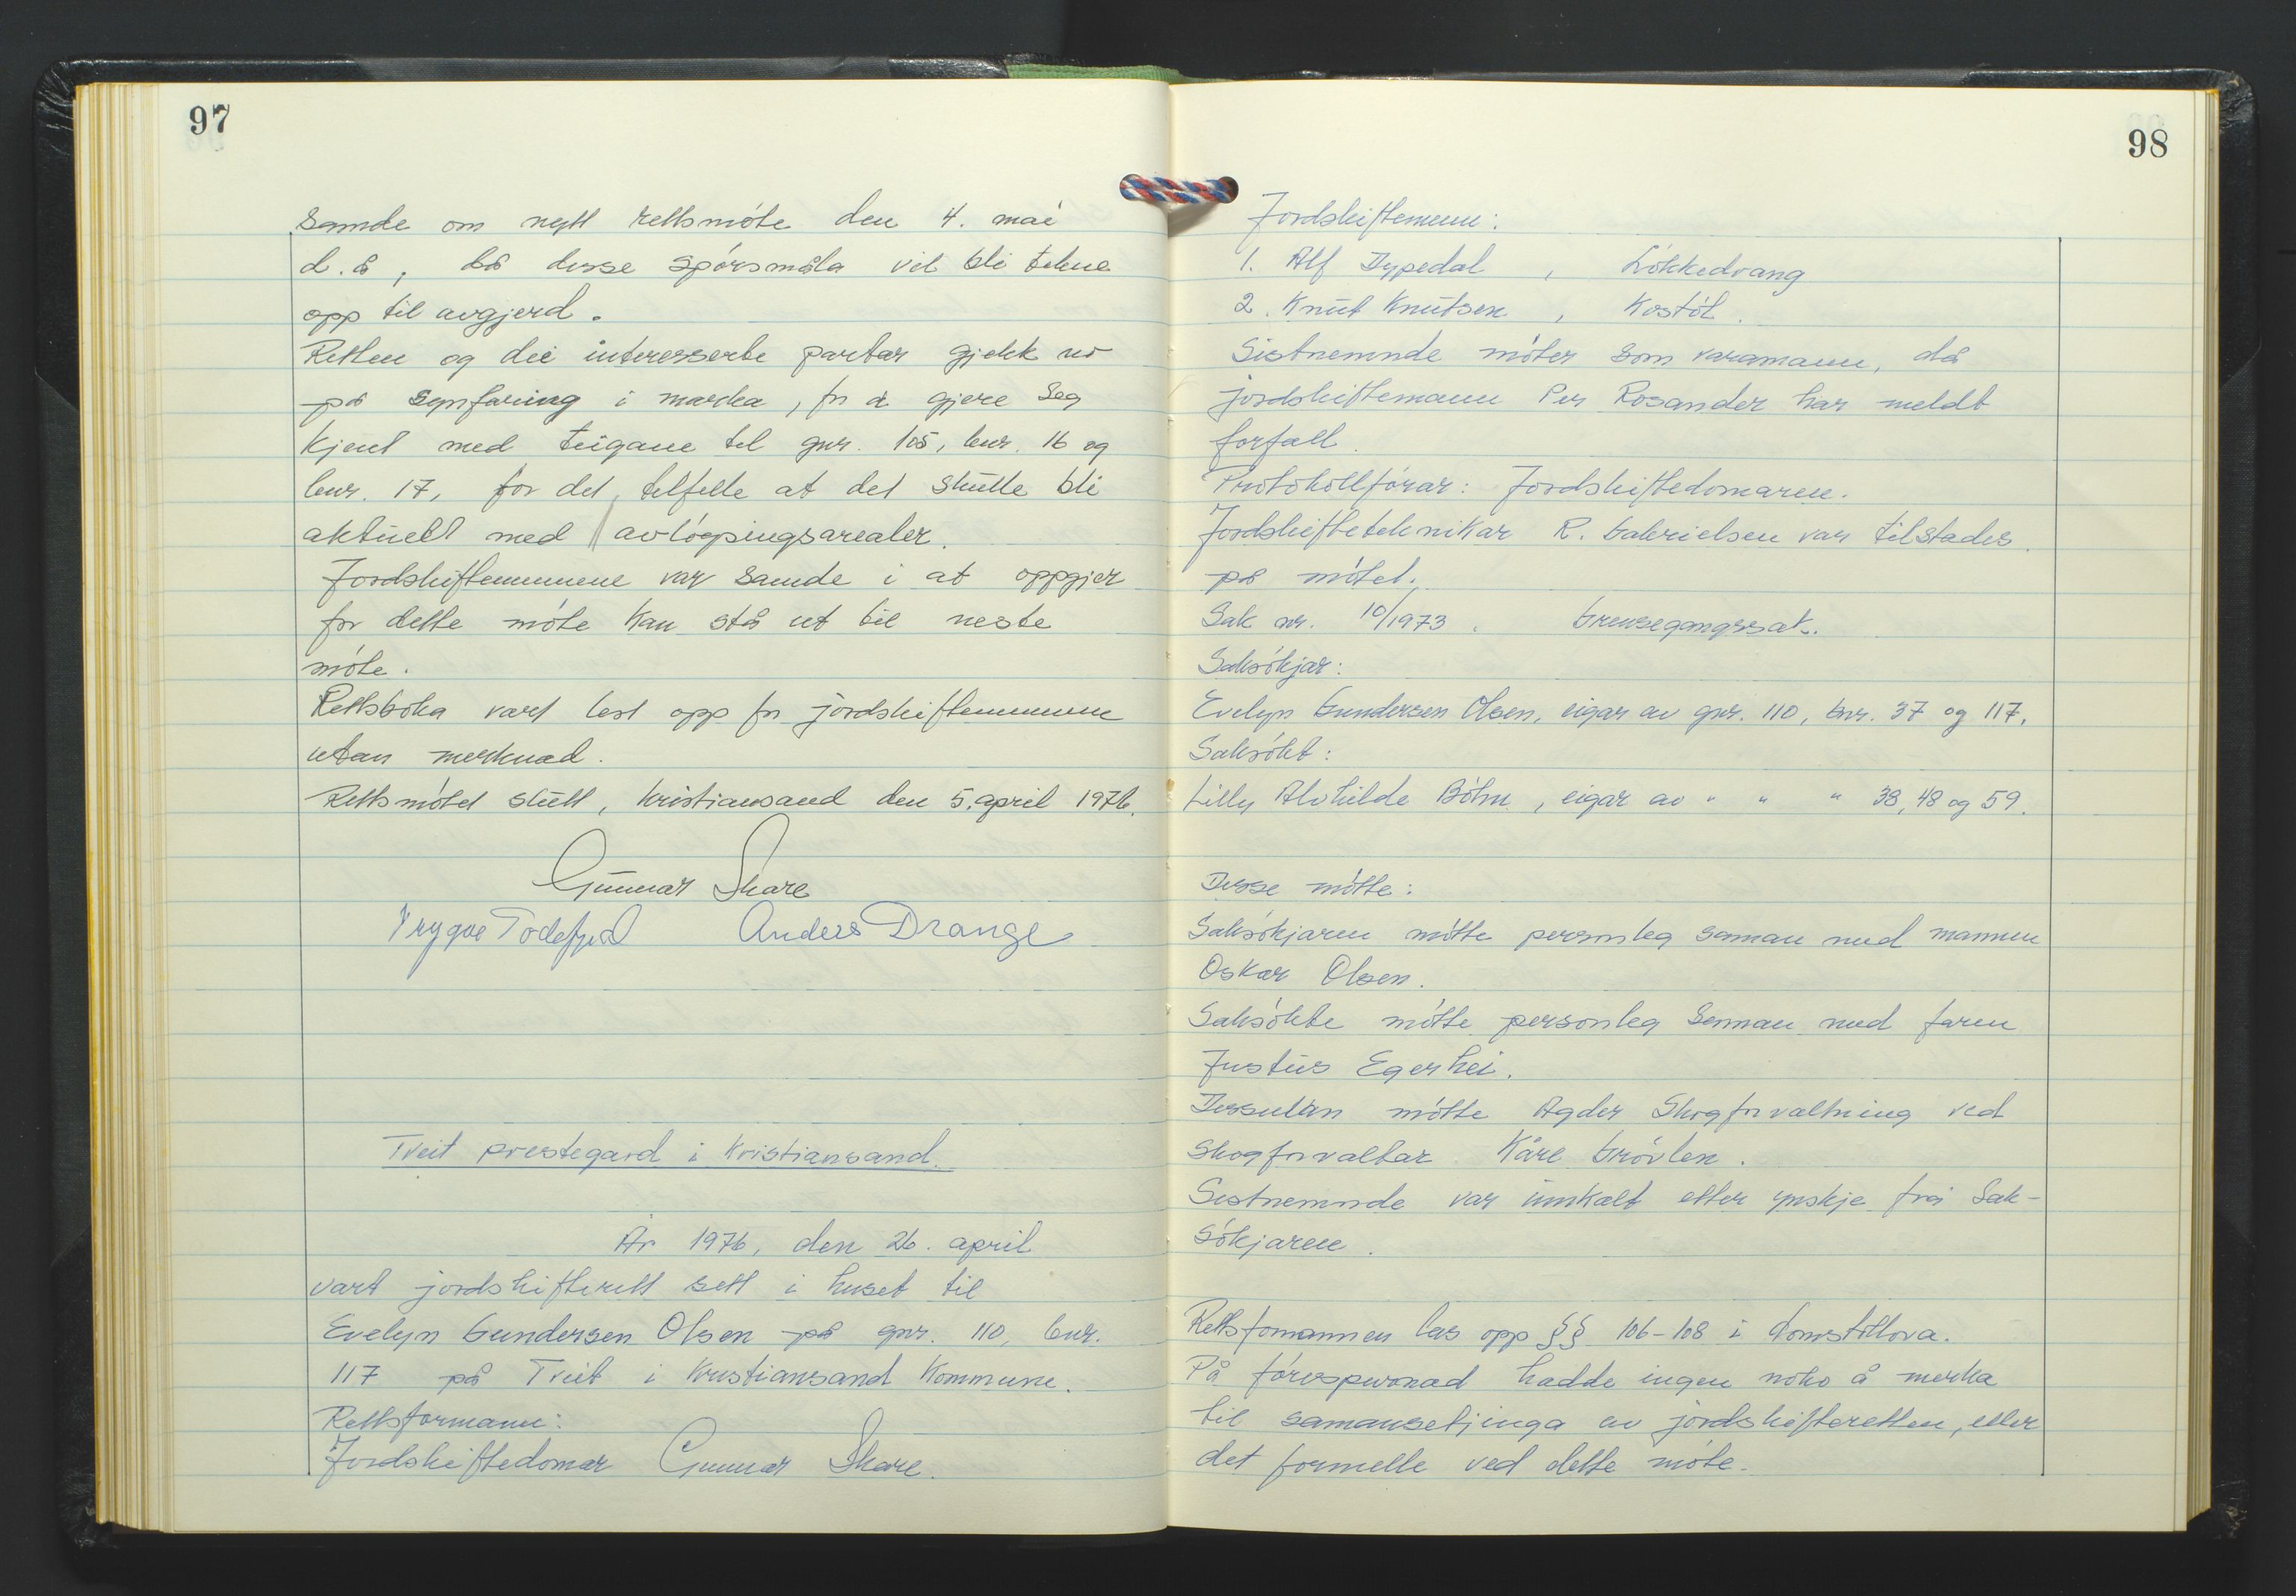 97
samde om nytt rettsmøte den 4. mai
d.å, då desse spørsmåla vil bli tekne
opp til avgjerd.
Retten og dei interesserte partar gjekk no
på synfaring i marka, for å gjere seg
kjent med teigane til gnr. 105, bnr. 16 og
bnr. 17, for det tilfelle at det skulle bli
aktuelt med avløysingsarealer.
Jordskiftemennene var samde i at oppgjer
for dette møte kan stå ut til neste
møte.
Rettsboka vart lest opp for jordskiftemennene
utan merknad.
Rettsmøtet slutt, Kristiansand den 5. april 1976.
Gunnar Skare
Trygve Anders Drange
Tveit prestegard i Kristiansand.
År 1976, den 26. april
vart jordskifterett sett i huset til
Evelyn Gundersen Olsen på gnr. 110, bnr.
117 på Tveit i Kristiansand Kommune.
Rettsformann:
Jordskiftedomar Gunnar Skare.
98
Jordskiftemenn:
1. Alf Dypedal, Løkkedvang
2. Knut Knutsen, Kostøl.
Sistnemnde møter som varamann, då
jordskiftemann Per Rosander har meldt
forfall.
Protokollførar: Jordskiftedomaren.
Jordskifteteknikar R. Gabrielsen var tilstades
på møtet.
Sak nr. 10/1973. Grensegangssak.
Saksøkjar:
Evelyn Gundersen Olsen, eigar av gnr. 110, bnr. 37 og 117.
Saksøkt:
Lilly Alvhilde Bøhn, eigar av " " " 38, 48 og 59.
Desse møtte:
Saksøkjaren møtte personleg saman med mannen
Oskar Olsen.
Saksøkte møtte personleg saman med faren
Justus Egerhei.
Dessutan møtte Agder Skogforvaltning ved
skogforvaltar Kåre Grøvlen.
Sistnemnde var innkalt etter ynskje frå Sak-
søkjaren.
Rettsfomannen las opp §§ 106-108 i domstollova.
På førespurnad hadde ingen noko å merka
til samansetjinga av jordskifteretten, eller
det formelle ved dette møte.